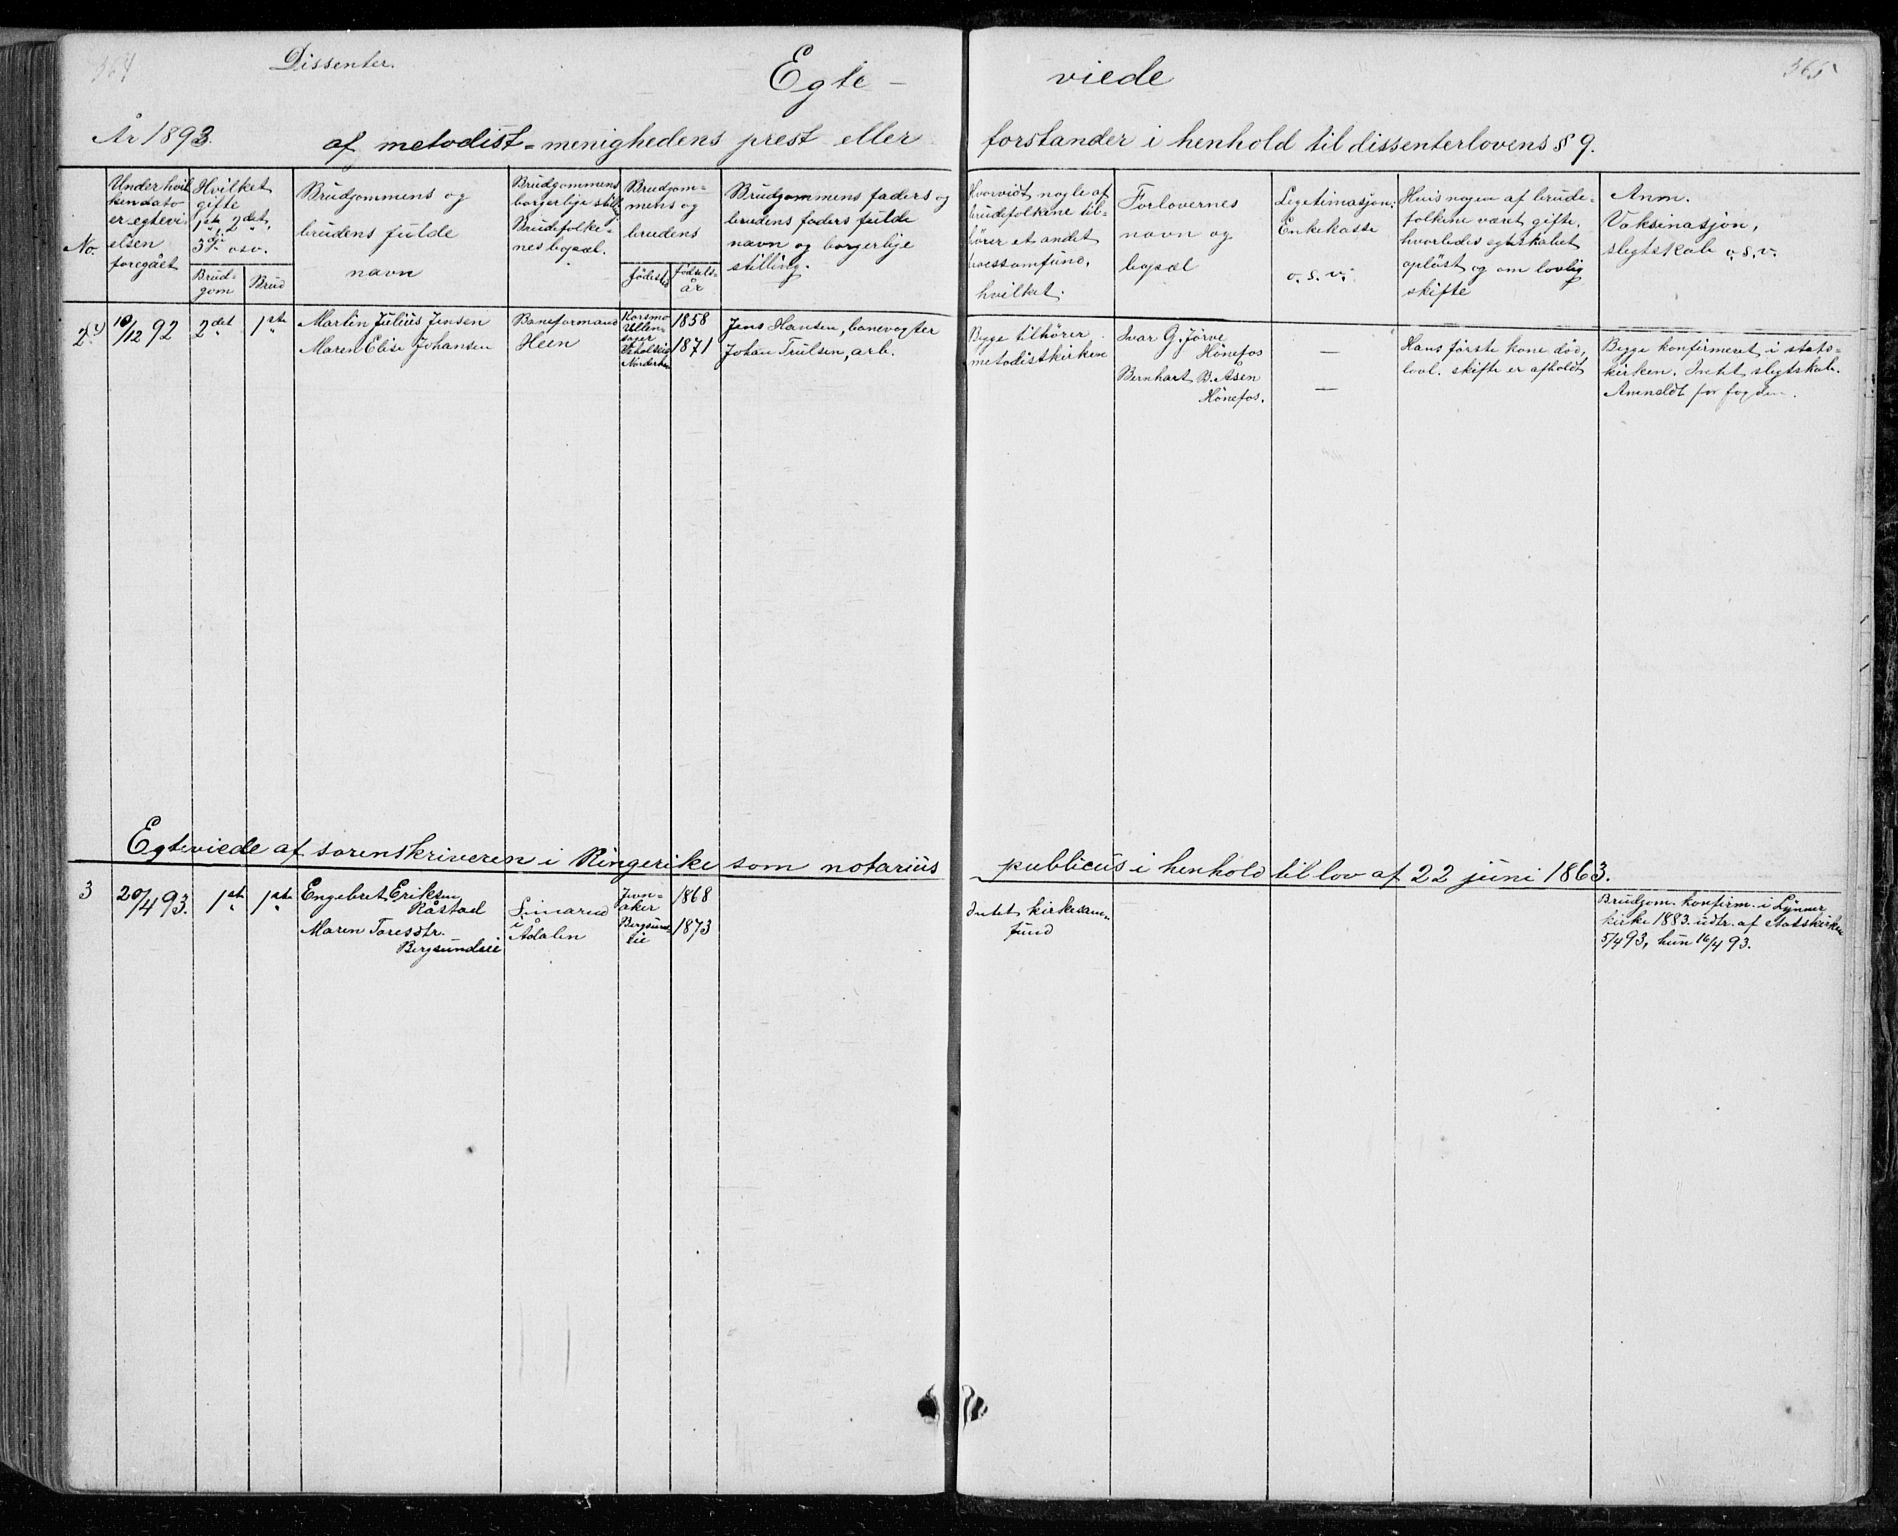 364
Dissenter.
Egte-
viede
365
År 1893.
af metodist-menighedens prest eller
forstander i henhold til dissenterlovens § 9.
No.
Under hvil
ken dato
er egtevi-
elsen
foregået
Hvilket
gifte
1ste, 2det,
3die osv.
Brud-
gom
Brud
Brudgommens og
brudens fulde
navn
Brudgommens
borgerlige still.
Brudefolke-
nes bopæl.
Brudgom-
mens og
brudens
fødested
fødsels-
år
Brudgommens faders og
brudens faders fulde
navn og borgerlige
stilling.
Hvorvidt nogle af
brudefolkene til-
hører et andet
troessamfund,
hvilket.
Forlovernes
navn og
bopæl
Legetimasjon.
Enkekasse
o. s. v.
Hvis nogen af brude-
folkene været gifte,
hvorledes egteskabet
opløst og om lovlig
skifte
Anm.
Vaksinasjon,
slegtskab o. s. v.
2
10/12 92
2det
1ste
Martin Julius Jensen
Maren Elise Johansen
Baneformand
Heen
Korsmo
Ullen-
saker
Norderhov
1858
1871
Jens Hansen, banevogter
Johan Trulsen, arb.
Begge tilhører
metodistkirken
Ivar G. Jørve
Hönefos
Bernhart B. Asen
Hönefos.
—
—
Hans første kone död,
lovl. skifte er afholdt
Begge konfirmeret i stats-
kirken. Intet slegtskab.
Anmeldt for fogden.
Egteviede af sorenskriveren i Ringerike som notarius
publicus i henhold til lov af 22 juni 1863.
3
20/4 93.
1ste
1ste
Engebret Eriksen
Råstad
Maren Toresdtr.
Bergsundeie
Simarud
i
Ådalen
Jevn-
aker
Bergsund-
eie
1868
1873
Intet kirkesam-
fund
Brudgom. konfirm. i Lunner
kirke 1883. udtr. af Statskirken
5/4 93, hun 16/4 93.